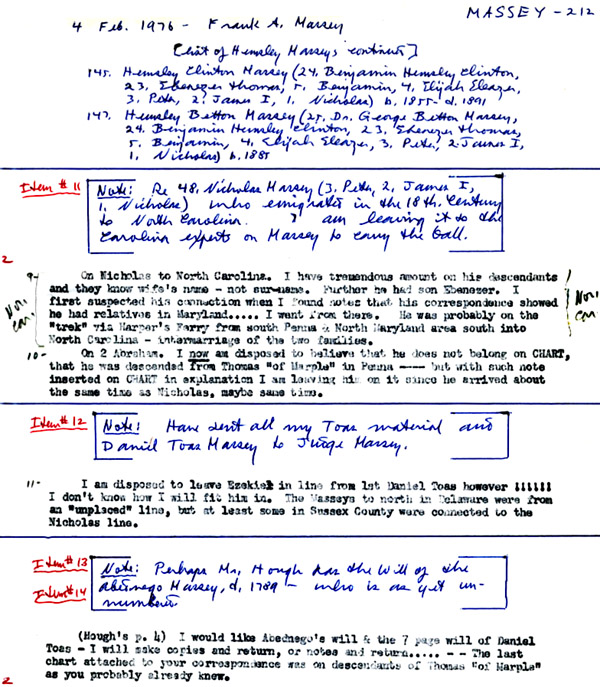 MASSEY - 212
4 Feb. 1976 - Frank A. Massey
[List of Hemsley Masseys continues]
145. Hemsley Clinton Massey (24. Benjamin Hemsley Clinton,
23. Ebenezer Thomas, 5. Benjamin, 4. Elijah Eleazer,
3. Peter, 2. James I, 1. Nicholas) b. 1855- d. 1891
147. Hemsley Betton Massey (25. Dr. George Betton Massey,
24. Benjamin Hemsley Clinton, 23. Ebenezer Thomas,
5. Benjamin, 4. Elijah Eleazer, 3. Peter, 2. James I,
1. Nicholas) b. 1885
Item # 11
Note: Re 48. Nicholas Massey (3. Peter, 2. James I,
1. Nicholas) who emigrates in the 18th. Century
to North Carolina. I am leaving it to the
Carolina experts on Massey to carry the ball.
2
9- On Nicholas to North Carolina. I have tremendous amount on his descendants
and they know wife's name - not surname. Further he had son Ebenezer. I
first suspected his connection when I found notes that his correspondence showed
he had relatives in Maryland..... I went from there. He was probably on the
"trek" via Harper's Ferry from south Penna & North Maryland area south into
North Carolina - intermarriage of the two families.
Nor.
Car.
Nor.
Car.
10- On 2 Abraham. I now am disposed to believe that he does not belong on CHART,
that he was descended from Thomas "of Marple" in Penna --- but with such note
inserted on CHART in explanation I am leaving him on it since he arrived about
the same time as Nicholas, maybe same time.
Item # 12
Note: Have sent all my Toas material and
Daniel Toas Massey to Judge Massey.
11- I am disposed to leave Ezekiel in line from 1st Daniel Toas however !!!!!!
I don't know how I will fit him in. The Masseys to north in Delaware were from
an "unplaced" line, but at least some in Sussex County were connected to the
Nicholas line.
Item # 13
Item # 14
Note: Perhaps Mr. Hough has the Will of the
Abednego Massey, d. 1789 - who is as yet un-
numbered
(Hough's p. 4) I would like Abednego's will & the 7 page will of Daniel
Toas - I will make copies and return, or notes and return..... - - The last
chart attached to your correspondence was on descendants of Thomas "of Marple"
as you probably already know.
2